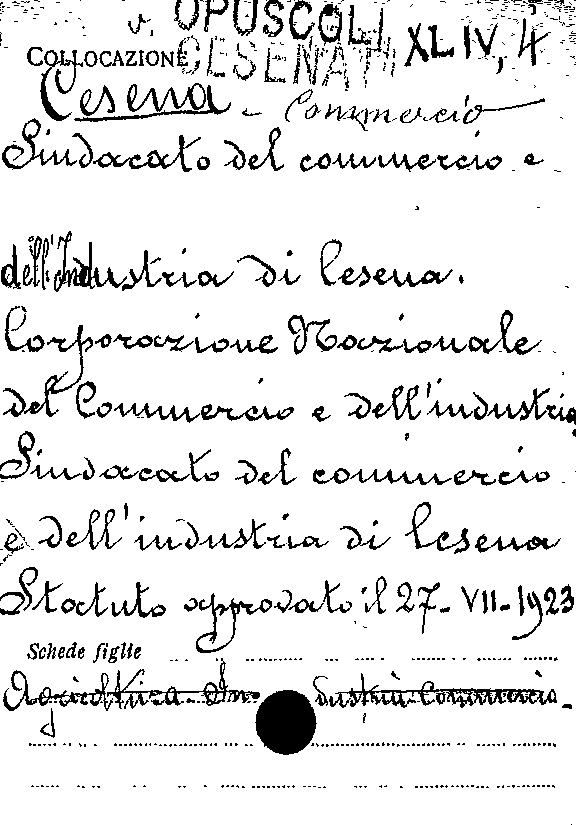 v. OPUSCOLI
COLLOCAZIONE CESENATI XLIV, 4
Cesena - Commercio
Sindacato del commercio e
dell'Industria di Cesena.
Corporazione Nazionale
del Commercio e dell'industria
Sindacato del commercio
e dell'industria di Cesena
Statuto approvato il 27-VII-1923
Schede figlie
Agricoltura - Industria Commercio -